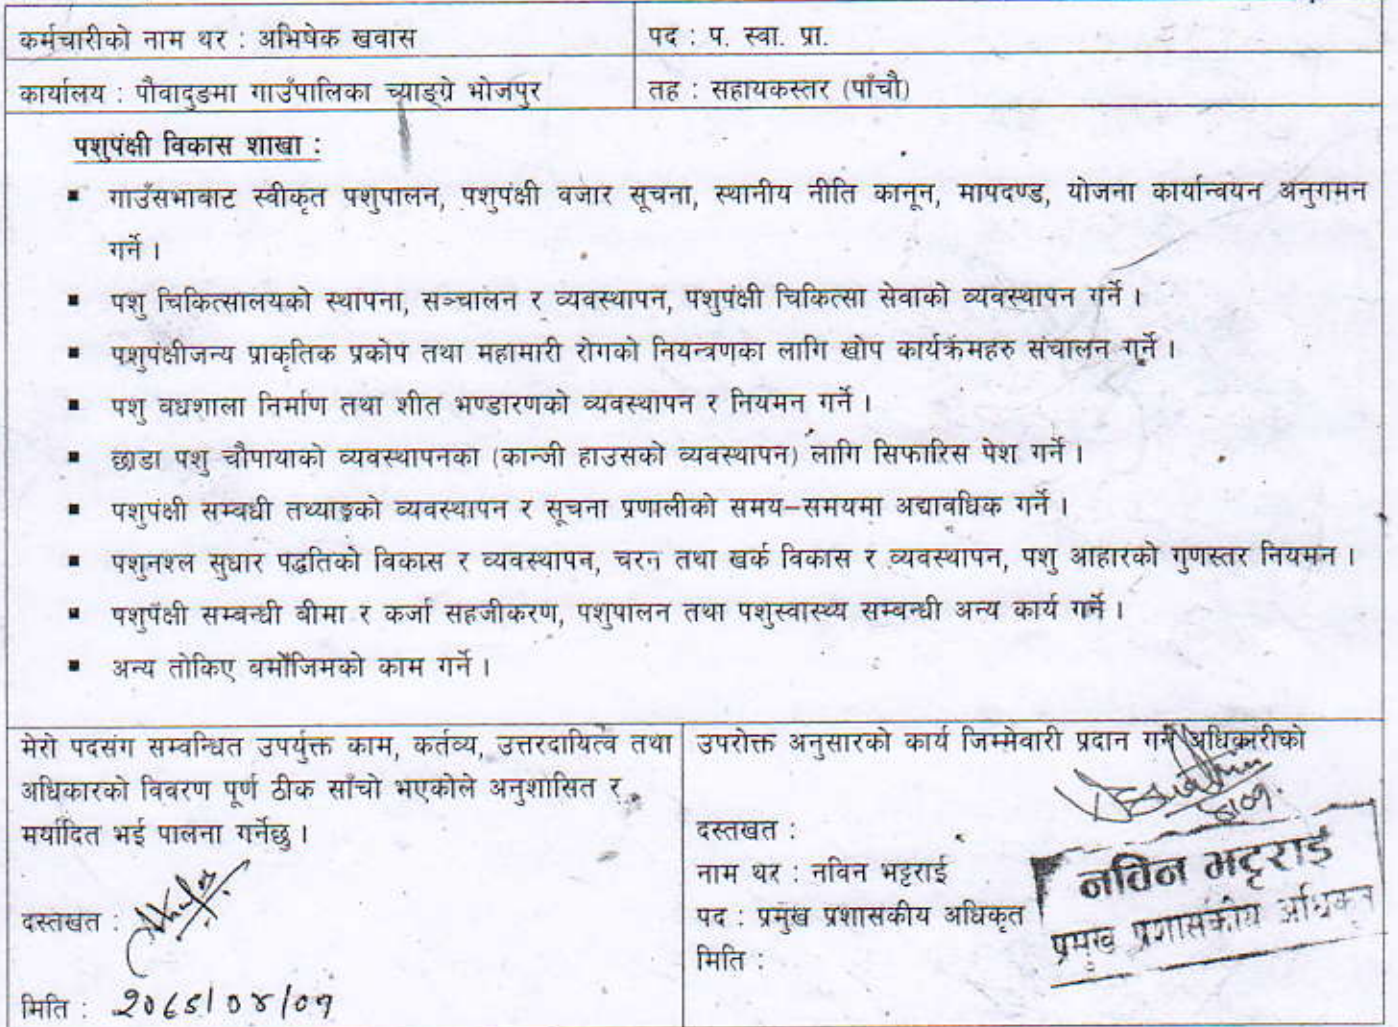 कर्मचारीको नाम थर : अभिषेक खवास
पद : प. स्वा. प्रा.
कार्यालय : पौवादुङमा गाउँपालिका च्याङ्ग्रे भोजपुर
तह : सहायकस्तर (पाँचौ)
पशुपंक्षी विकास शाखा :
▪ गाउँसभाबाट स्वीकृत पशुपालन, पशुपंक्षी बजार सूचना, स्थानीय नीति कानून, मापदण्ड, योजना कार्यान्वयन अनुगमन
गर्ने ।
▪ पशु चिकित्सालयको स्थापना, सञ्चालन र व्यवस्थापन, पशुपंक्षी चिकित्सा सेवाको व्यवस्थापन गर्ने ।
▪ पशुपंक्षीजन्य प्राकृतिक प्रकोप तथा महामारी रोगको नियन्त्रणका लागि खोप कार्यक्रमहरु संचालन गर्ने ।
▪ पशु बधशाला निर्माण तथा शीत भण्डारणको व्यवस्थापन र नियमन गर्ने ।
▪ छाडा पशु चौपायाको व्यवस्थापनका (कान्जी हाउसको व्यवस्थापन) लागि सिफारिस पेश गर्ने ।
▪ पशुपंक्षी सम्बधी तथ्याङ्कको व्यवस्थापन र सूचना प्रणालीको समय–समयमा अद्यावधिक गर्ने ।
▪ पशुनश्ल सुधार पद्धतिको विकास र व्यवस्थापन, चरन तथा खर्क विकास र व्यवस्थापन, पशु आहारको गुणस्तर नियमन ।
▪ पशुपंक्षी सम्बन्धी बीमा र कर्जा सहजीकरण, पशुपालन तथा पशुस्वास्थ्य सम्बन्धी अन्य कार्य गर्ने ।
▪ अन्य तोकिए बमोजिमको काम गर्ने ।
मेरो पदसंग सम्वन्धित उपर्युक्त काम, कर्तव्य, उत्तरदायित्व तथा
अधिकारको विवरण पूर्ण ठीक साँचो भएकोले अनुशासित र
मर्यादित भई पालना गर्नेछु ।
दस्तखत :
मिति :
उपरोक्त अनुसारको कार्य जिम्मेवारी प्रदान गर्ने अधिकारीको
दस्तखत :
नाम थर : नविन भट्टराई
पद : प्रमुख प्रशासकीय अधिकृत
मिति :
नविन भट्टराई
प्रमुख प्रशासकीय अधिकृत